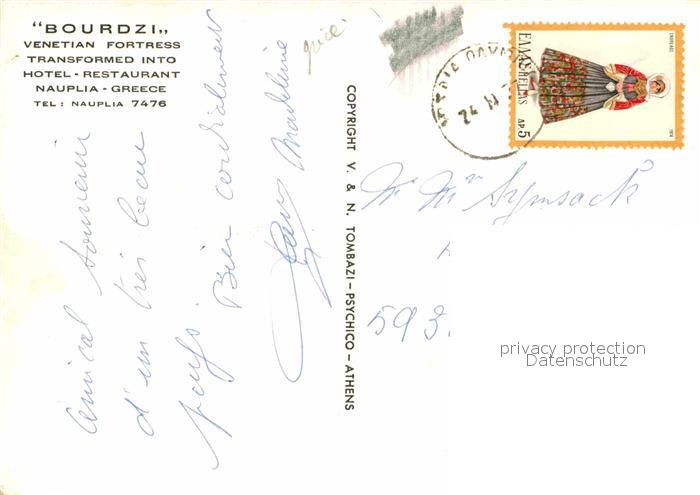 "BOURDZI,,
VENETIAN FORTRESS
TRANSFORMED INTO
HOTEL - RESTAURANT
NAUPLIA - GREECE
TEL : NAUPLIA 7476
Amical souvenir
d'un très beau
pays.
Bien cordialement
Madeleine
COPYRIGHT V. & N. TOMBAZI – PSYCHICO – ATHENS
ΕΛΛΑΣ HELLAS
ΔΡ. 5
24
Mr Mme Symsack
593.
privacy protection
Datenschutz